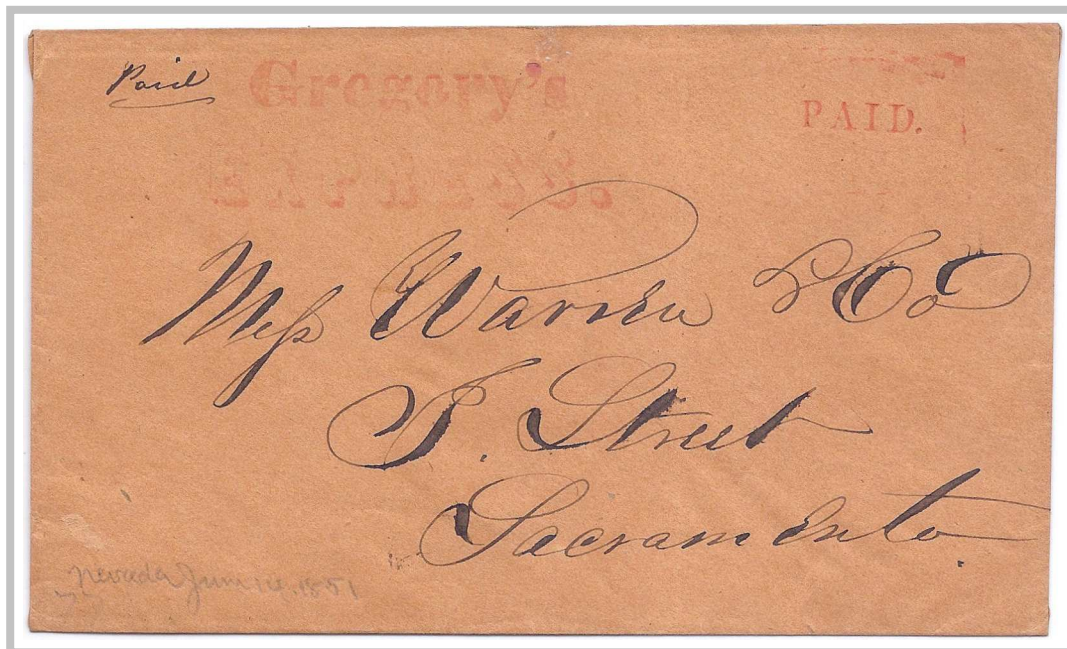 Paid
Gregory's
Express.
PAID.
Mess Warren & Co
J. Street
Sacramento.
Nevada June 14, 1851